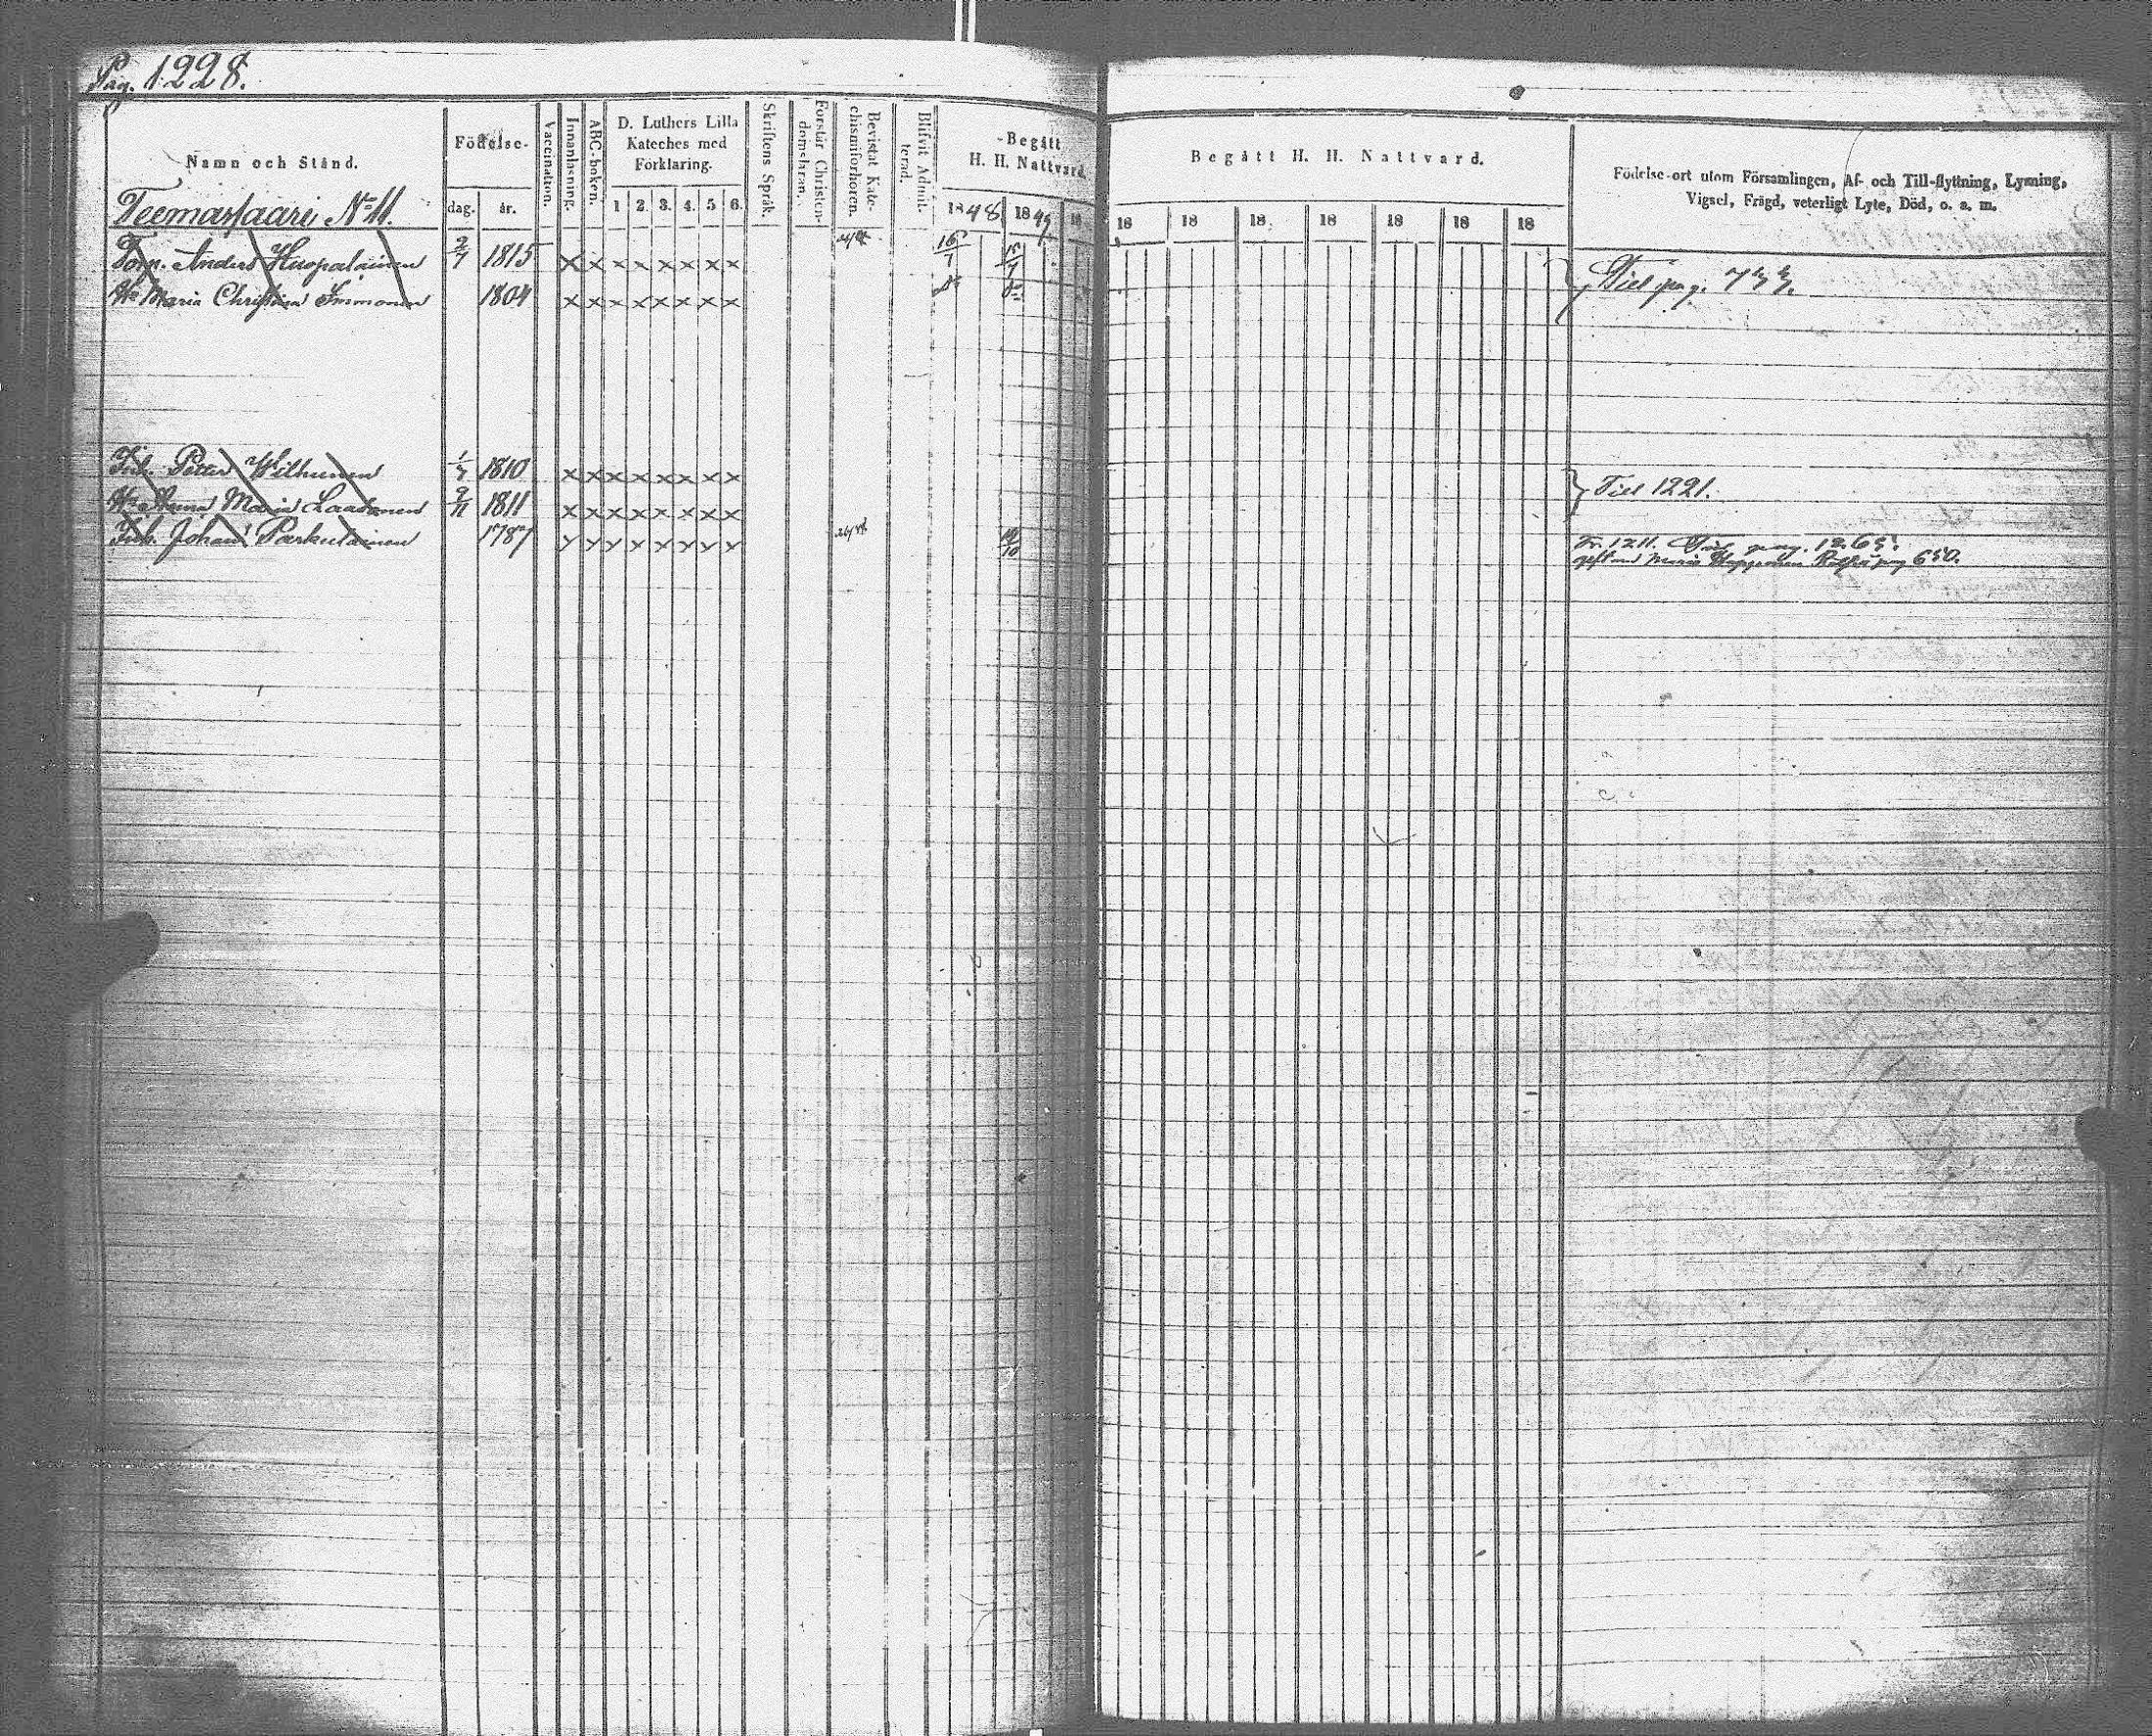 Pag. 1228.
Namn och Stånd.
Födelse-
dag. år.
Vaccination.
Innanläsning.
ABC-boken.
D. Luthers Lilla
Kateches med
Förklaring.
1 2. 3. 4. 5 6.
Skriftens Språk.
Förstår Christen-
domsläran.
Bevistat Kate-
chismiförhören.
Blifvit Admit-
terad.
Begått
H. H. Nattvard.
1848 1849 18
Begått H. H. Nattvard.
18 18 18 18 18 18 18
Födelse-ort utom Församlingen, Af- och Till-flyttning, Lysning,
Vigsel, Frägd, veterligt Lyte, Död, o. s. m.
Teemassaari No 11.
Torp. Anders Huopalainen 2/7 1815 x x x x x x x x 16/7 15/7
Hu Maria Christina Immonen 1804 x x x x x x x x do do
} Till pag. 733.
Inh. Petter Wilhunen 1/7 1810 x x x x x x x x
Hu Anna Maria Laakonen 9/11 1811 x x x x x x x x
} Till 1221.
Inh. Johan Parkulainen 1787 x x x x x x x x
Fr. 1211. pag. 1265.
gift med Maria pag 650.